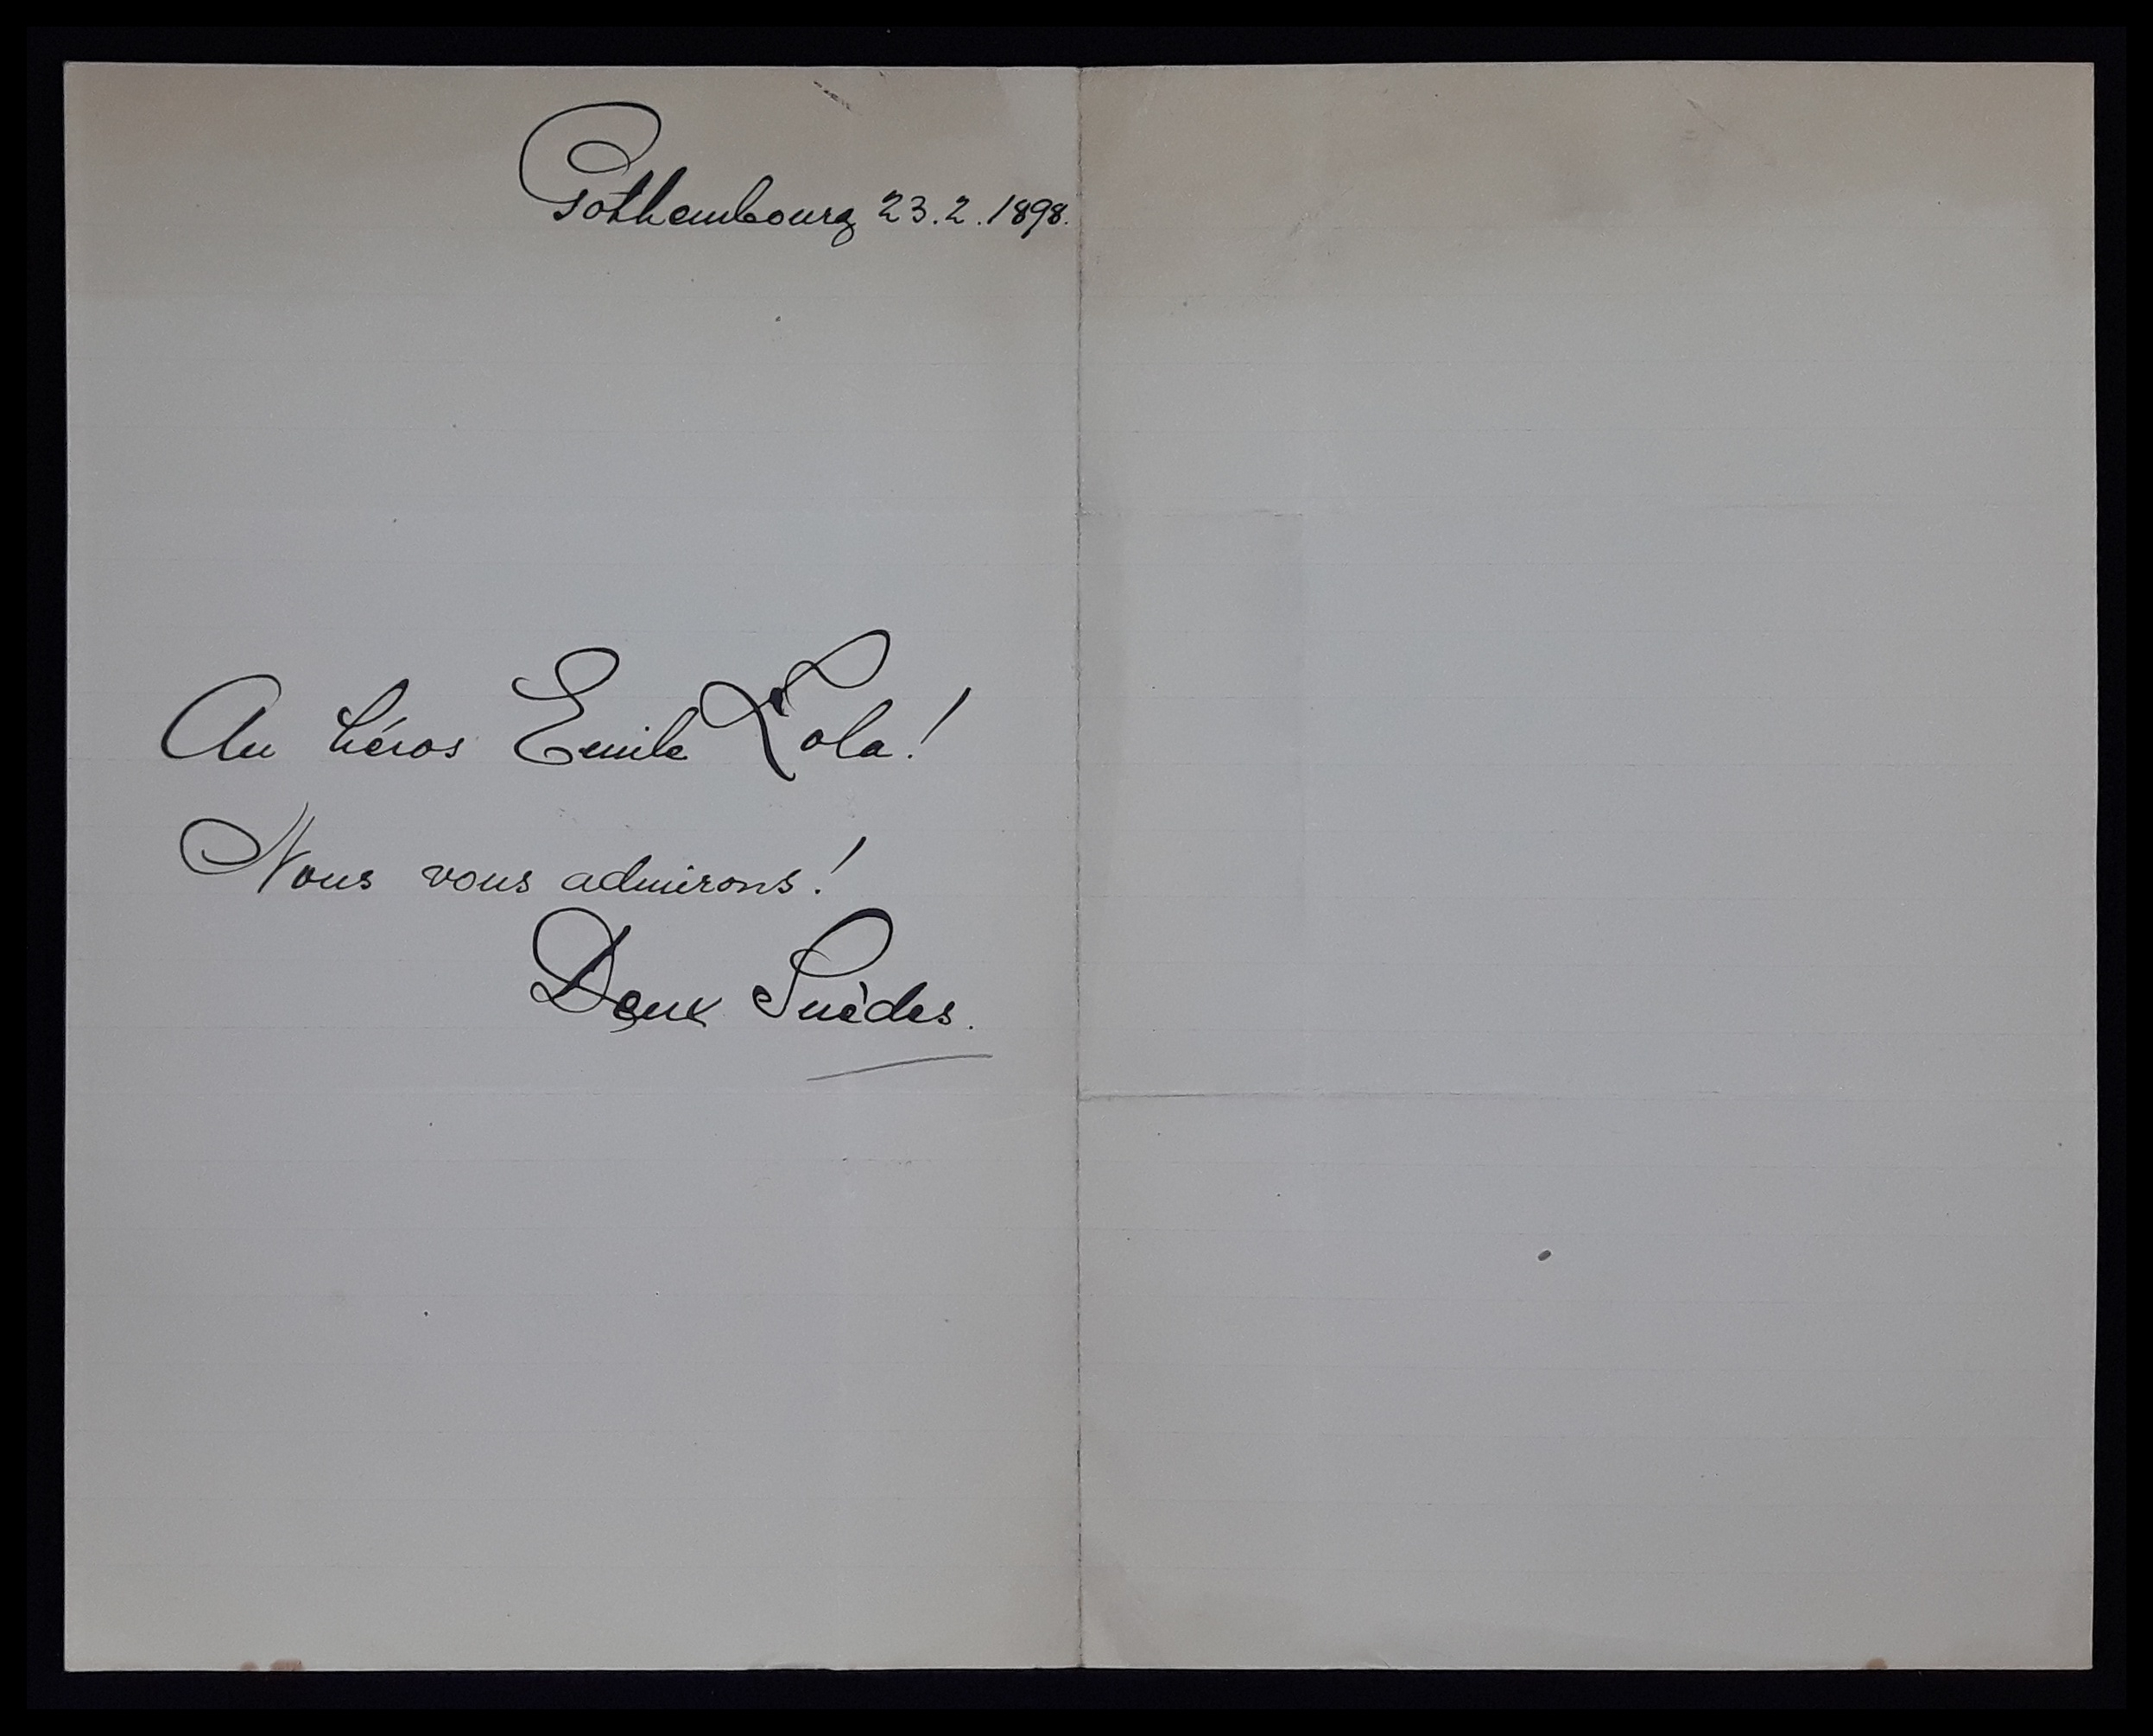 Gothembourg 23.2.1898.
Au héros Emile Zola!
Nous vous admirons!
Deux Suèdes.